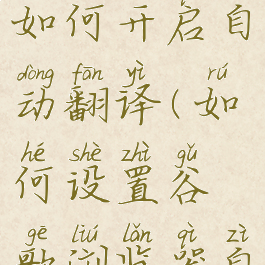 如何开启自
dòng fān yì rú
动翻译(如
hé shè zhì gǔ
何设置谷
gē liú lǎn qì zì
歌浏览器自